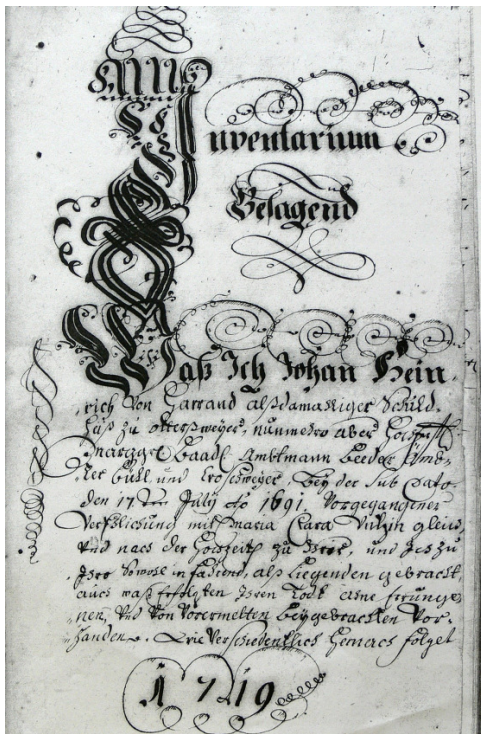 Inventarium
Besagend
Waß Ich Johan Hein-
rich Von Harrand alß damahliger Schuld-
heiß zu Otterßweyer, nunmehro aber
Marggr. Baad. Ambtmann beeder Ämb-
ter Bühl und Großweyer, bey der sub dato
den 17. July aõ 1691. Vorgegangener
Verehligung mit Maria Clara gleich
und nach der Hochzeith zu Ihro, und Sie zu
Ihro Sowohl in fahrend, alß liegenden gebracht,
auch waß Erfolgten Ihren Todt an
nen, Und Von Vorermelten beygebrachten Vor-
handen. Wie Verschiedentlich hernach folget
1719